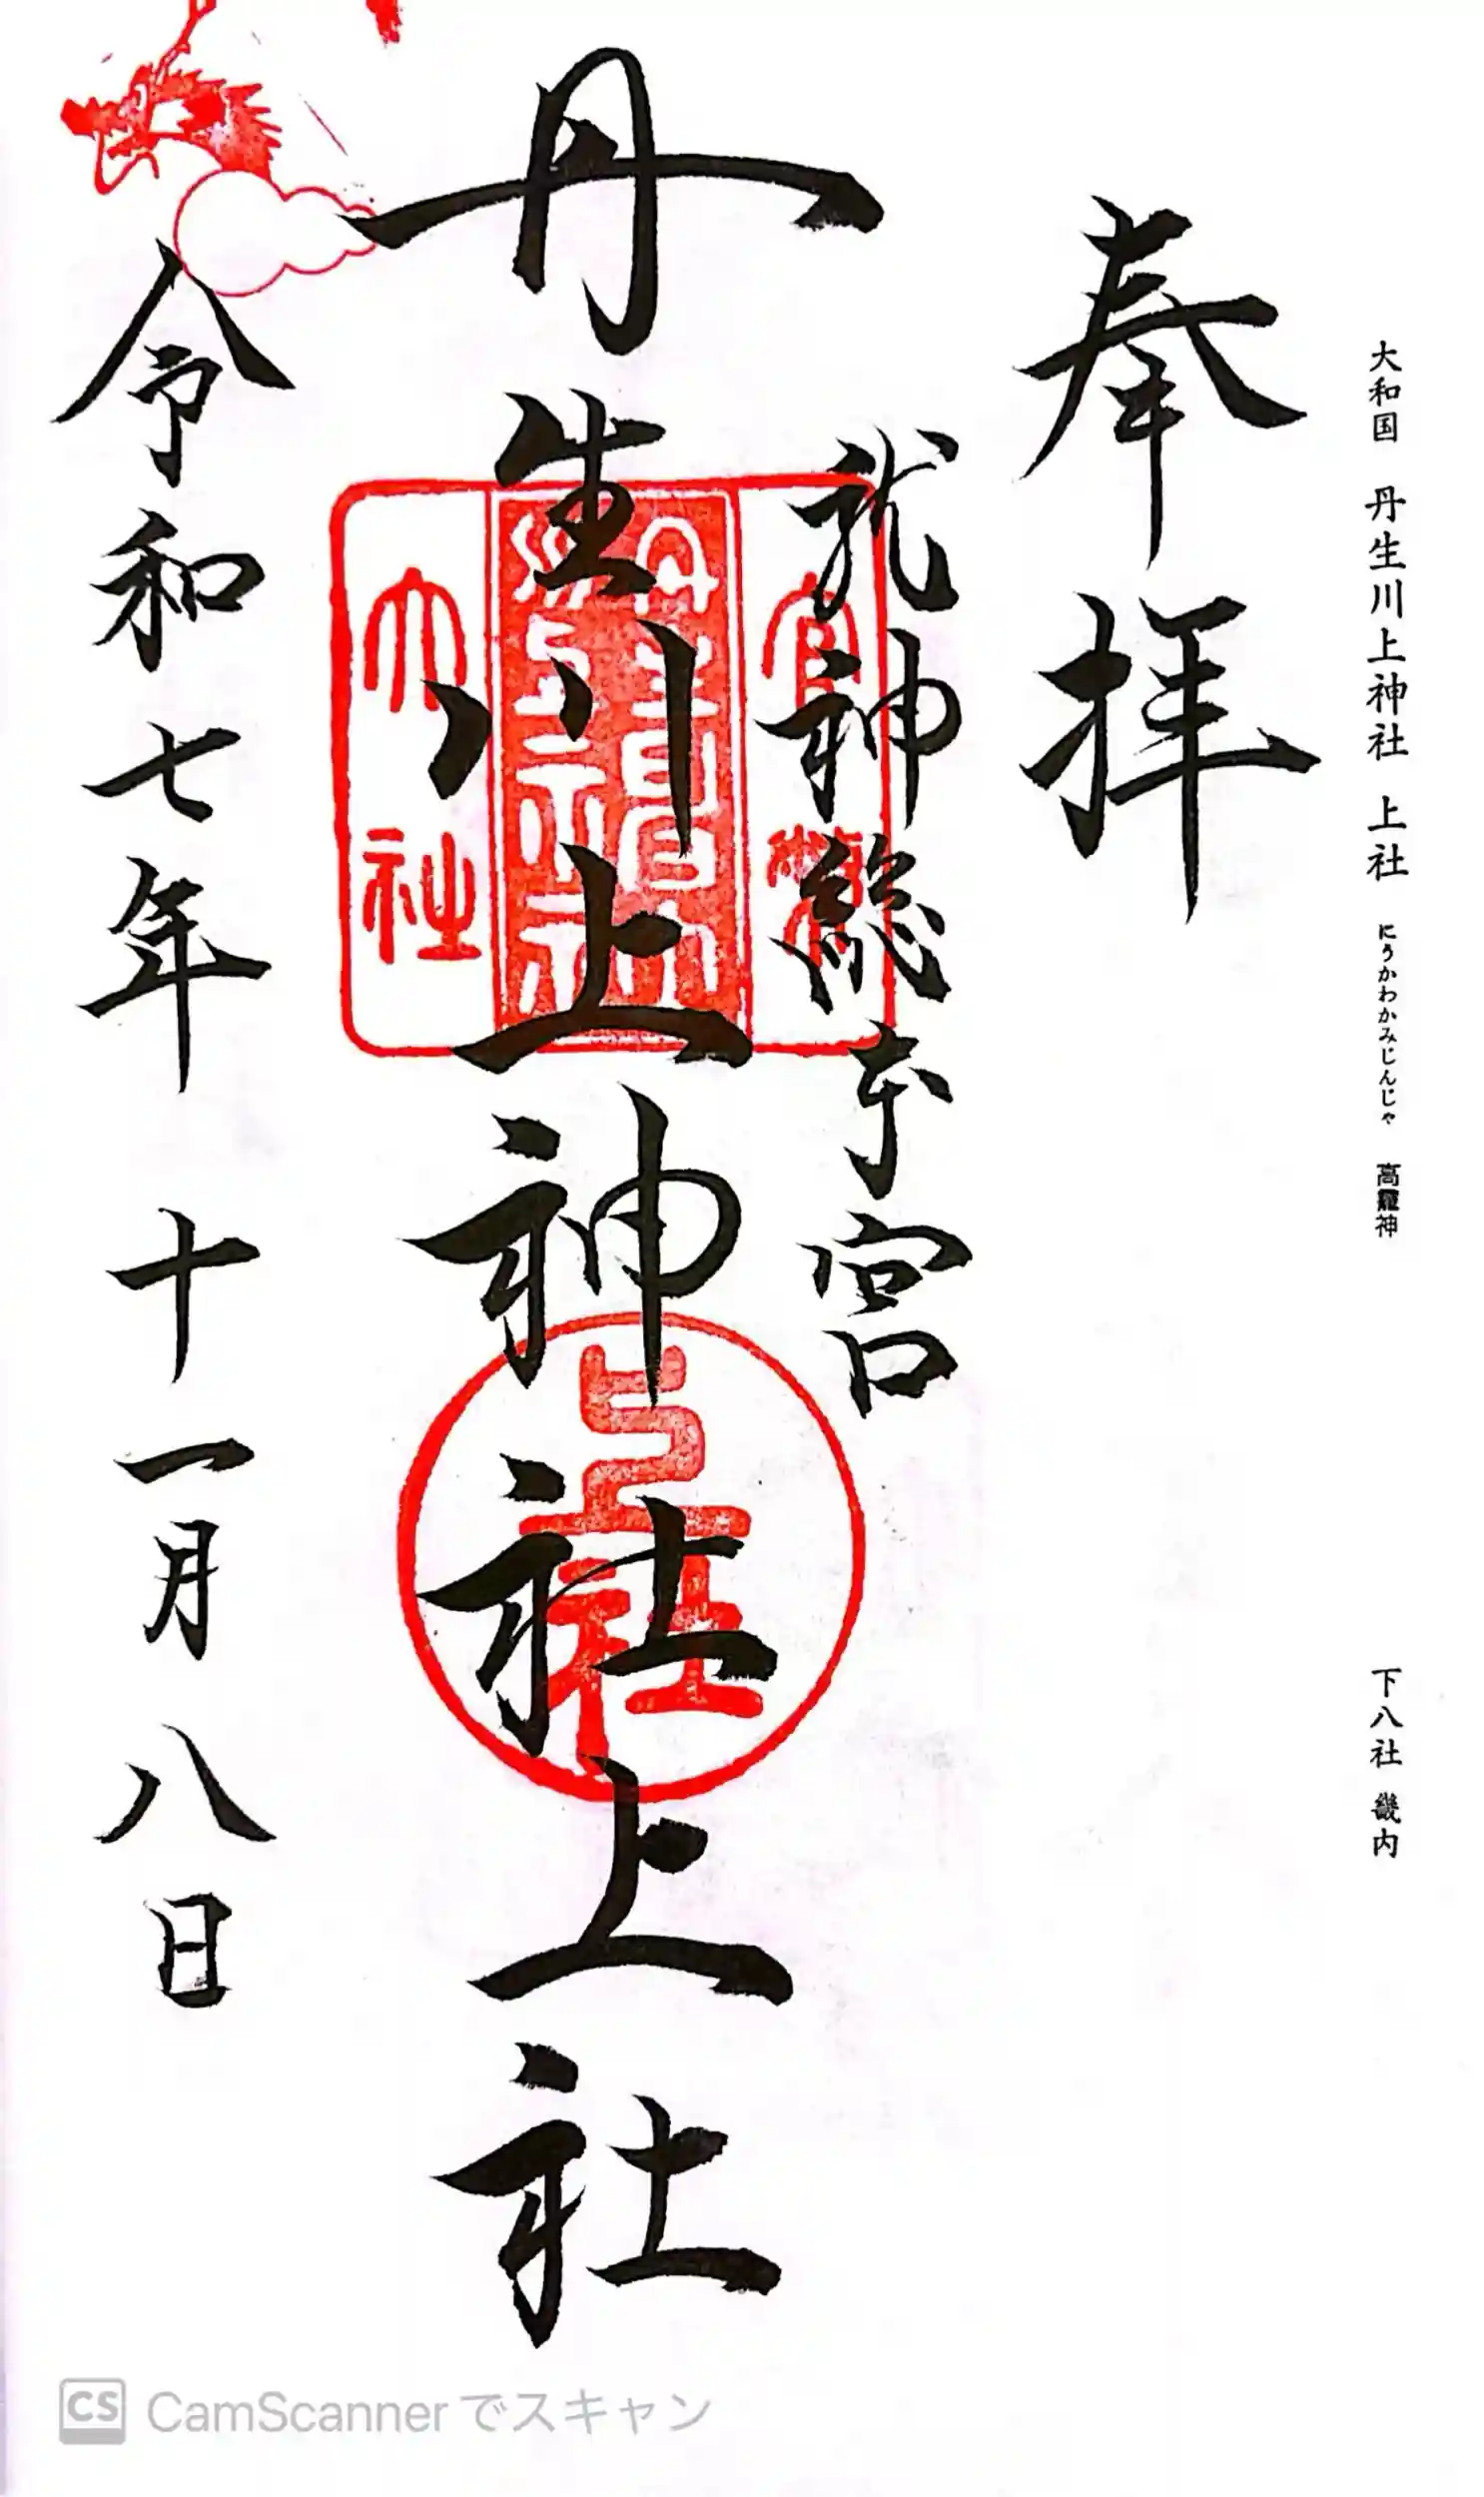 大和国 丹生川上神社 上社 にうかわかみじんじゃ 高龗神 下八社 畿内
奉拝
龍神総本宮
丹生川上神社上社
上社
令和七年 十一月 八日
CS CamScannerでスキャン